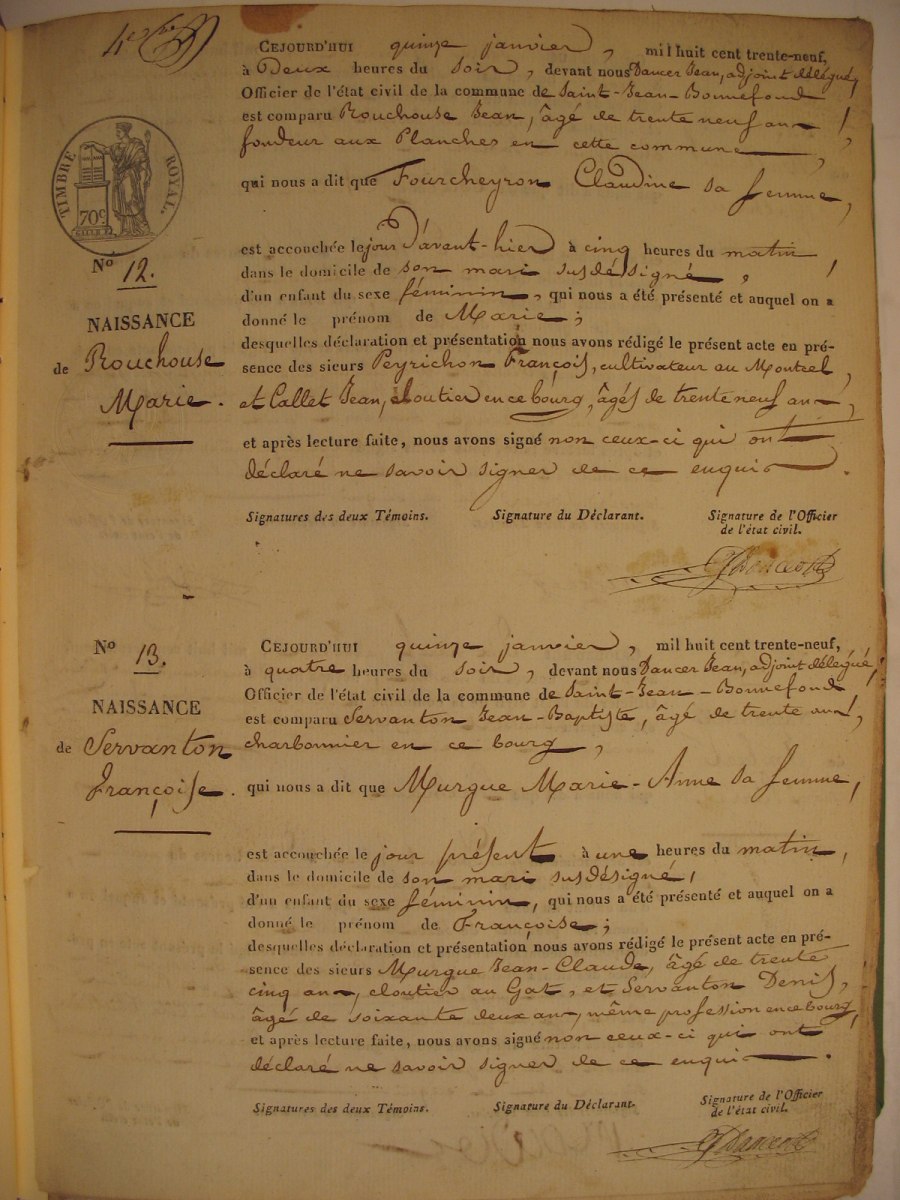 TIMBRE ROYAL.
70c.
CEJOURD'HUI quinze janvier, mil huit cent trente-neuf,
à Deux heures du soir, devant nous Dancer Jean, adjoint délégué,
Officier de l'état civil de la commune de Saint-Jean-Bonnefond
est comparu Rouchouse Jean, âgé de trente neuf ans,
fondeur aux Planches en cette commune,
qui nous a dit que Fourcheyron Claudine sa femme,
est accouchée le jour d'avant-hier à cinq heures du matin,
dans le domicile de son mari susdésigné,
d'un enfant du sexe féminin, qui nous a été présenté et auquel on a
donné le prénom de Marie;
desquelles déclaration et présentation nous avons rédigé le présent acte en pré-
sence des sieurs Peyrichon François, cultivateur au Montcel,
et Callet Jean, cloutier en ce bourg, âgés de trente neuf ans,
et après lecture faite, nous avons signé non ceux-ci qui ont
déclaré ne savoir signer de ce enquis.
Signatures des deux Témoins. Signature du Déclarant. Signature de l'Officier
de l'état civil.
No 12.
NAISSANCE
de Rouchouse
Marie.
No 13.
NAISSANCE
de Servanton
Françoise.
CEJOURD'HUI quinze janvier, mil huit cent trente-neuf,
à quatre heures du soir, devant nous Dancer Jean, adjoint délégué,
Officier de l'état civil de la commune de Saint-Jean-Bonnefond
est comparu Servanton Jean-Baptiste, âgé de trente ans,
charbonnier en ce bourg,
qui nous a dit que Murgue Marie-Anne sa femme,
est accouchée le jour présent à une heures du matin,
dans le domicile de son mari susdésigné,
d'un enfant du sexe féminin, qui nous a été présenté et auquel on a
donné le prénom de Françoise;
desquelles déclaration et présentation nous avons rédigé le présent acte en pré-
sence des sieurs Murgue Jean-Claude, âgé de trente
cinq ans, cloutier au Gat, et Servanton Denis,
âgé de soixante deux ans, même profession en ce bourg,
et après lecture faite, nous avons signé non ceux-ci qui ont
déclaré ne savoir signer de ce enquis.
Signatures des deux Témoins. Signature du Déclarant. Signature de l'Officier
de l'état civil.